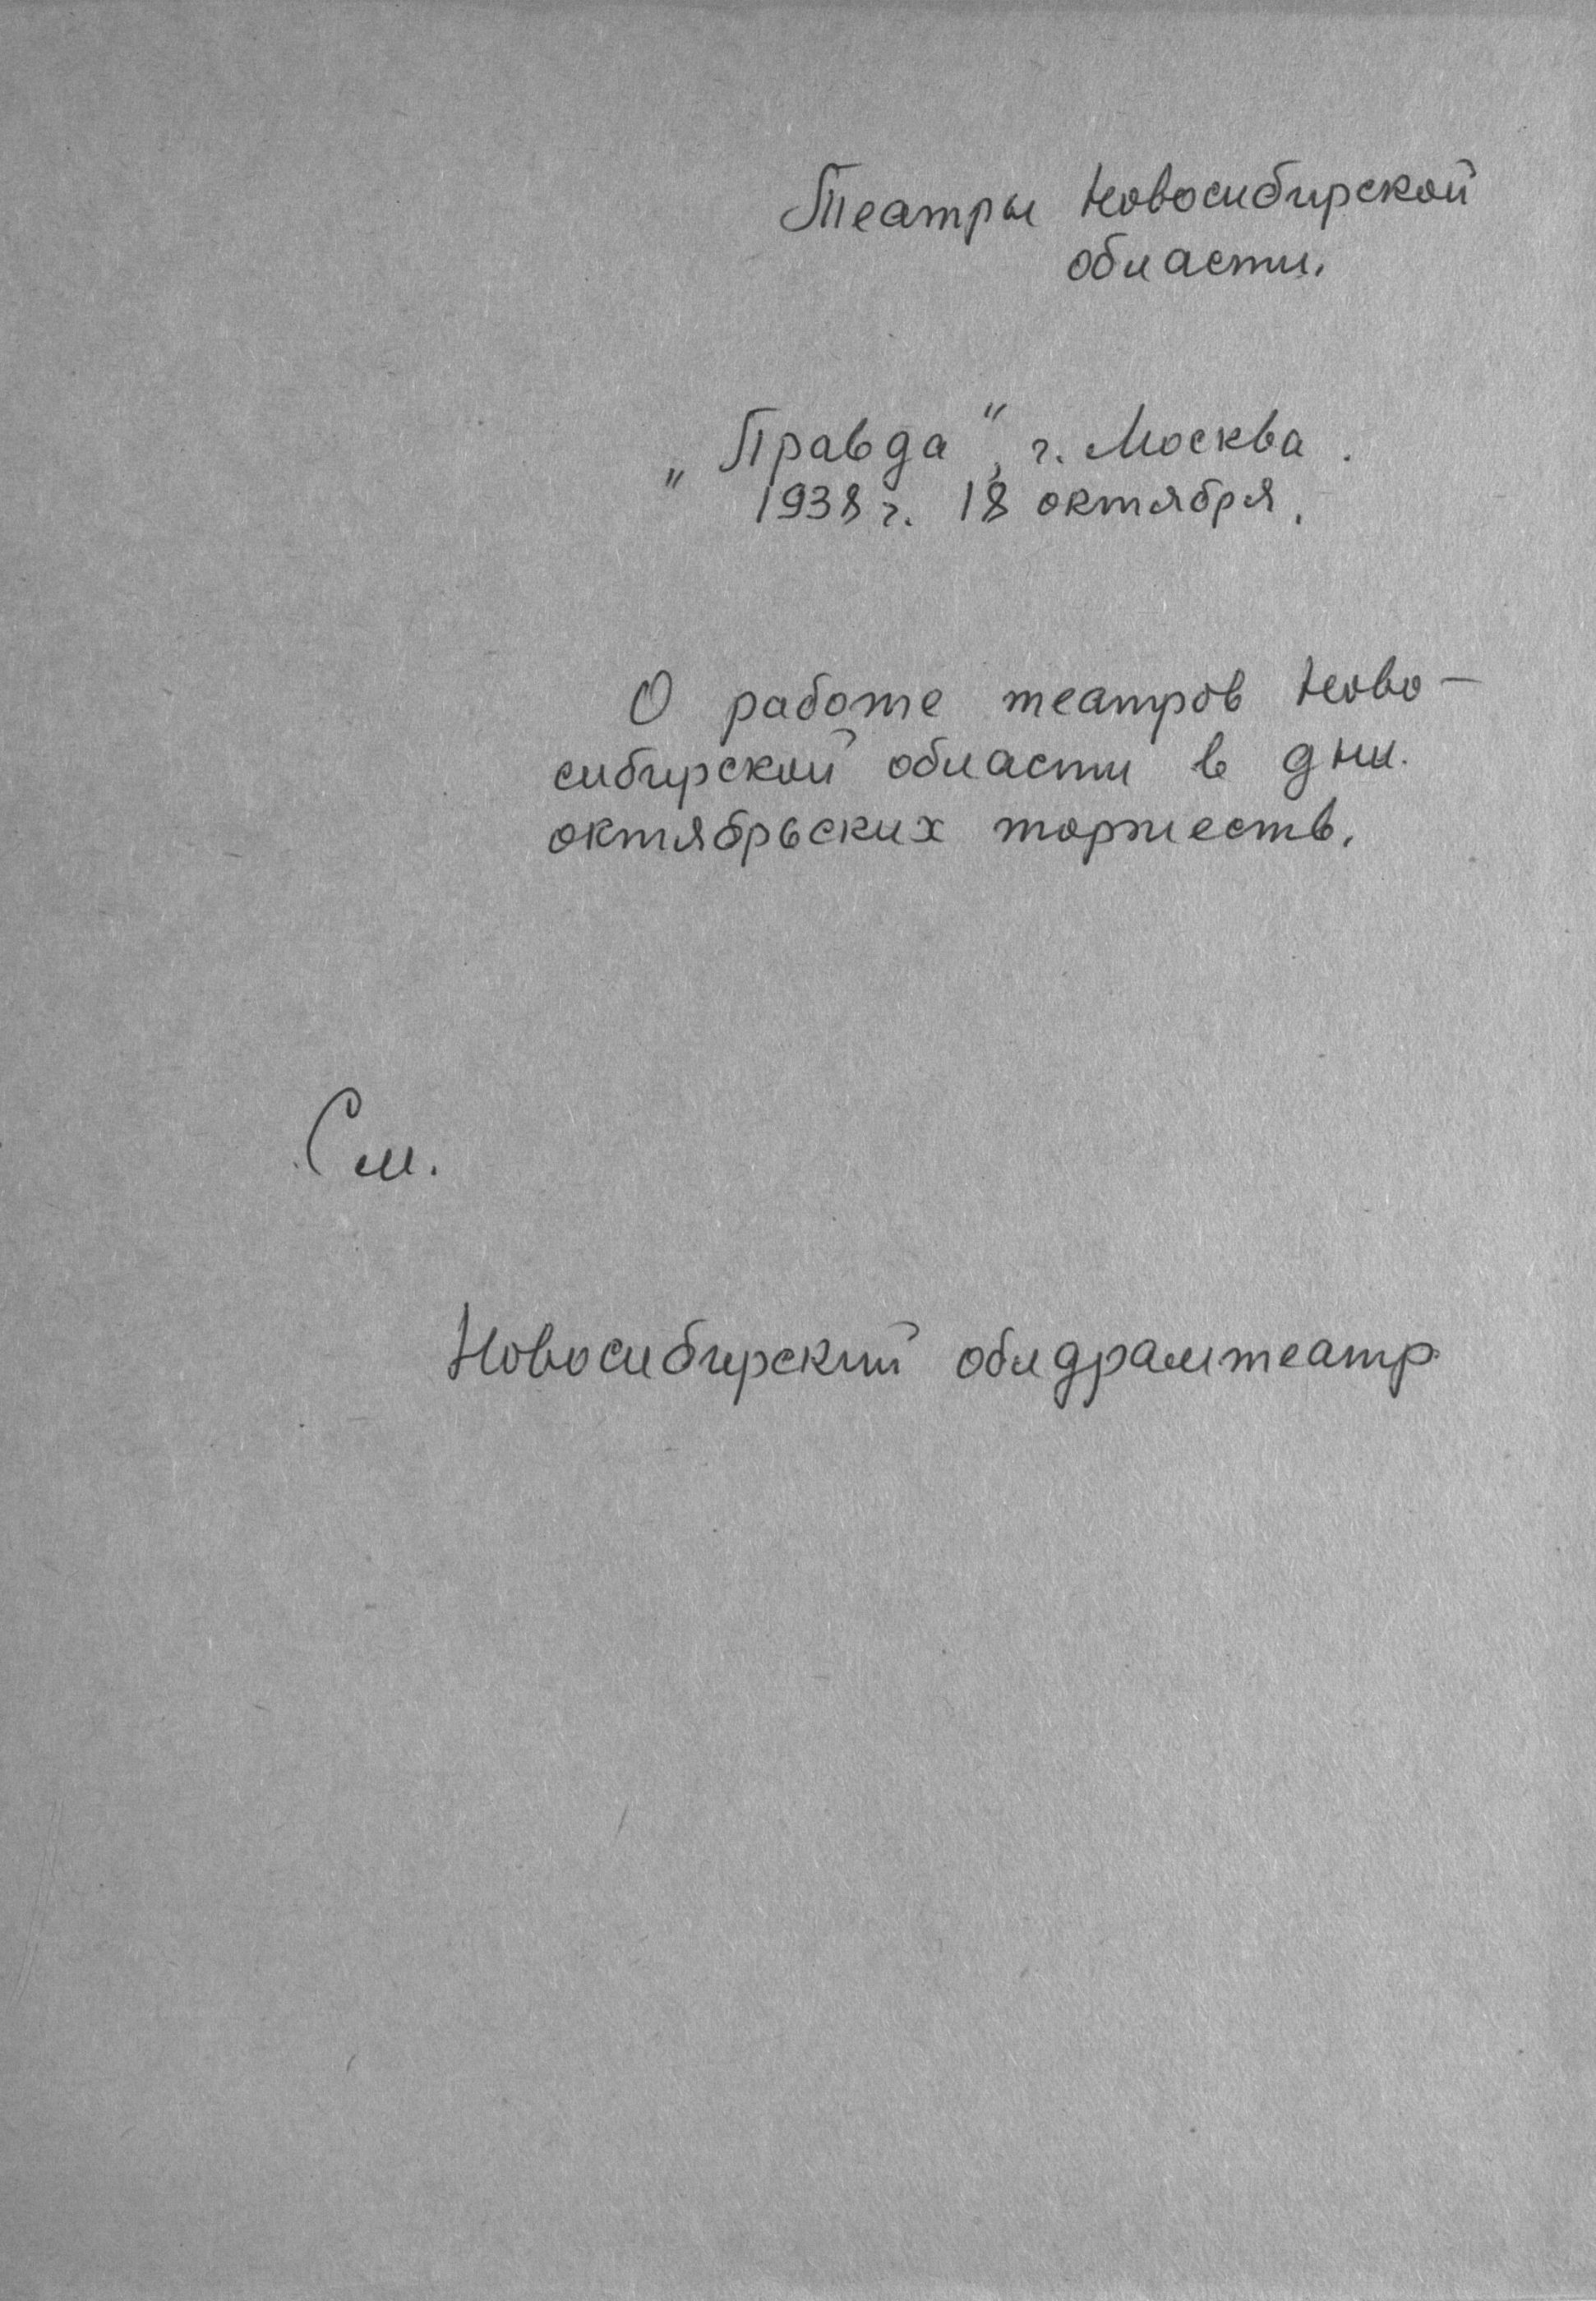 Театры Новосибирской
области.
„Правда“, г. Москва.
1938 г. 18 октября.
О работе театров Ново-
сибирской области в дни
октябрьских торжеств.
См.
Новосибирский облдрамтеатр